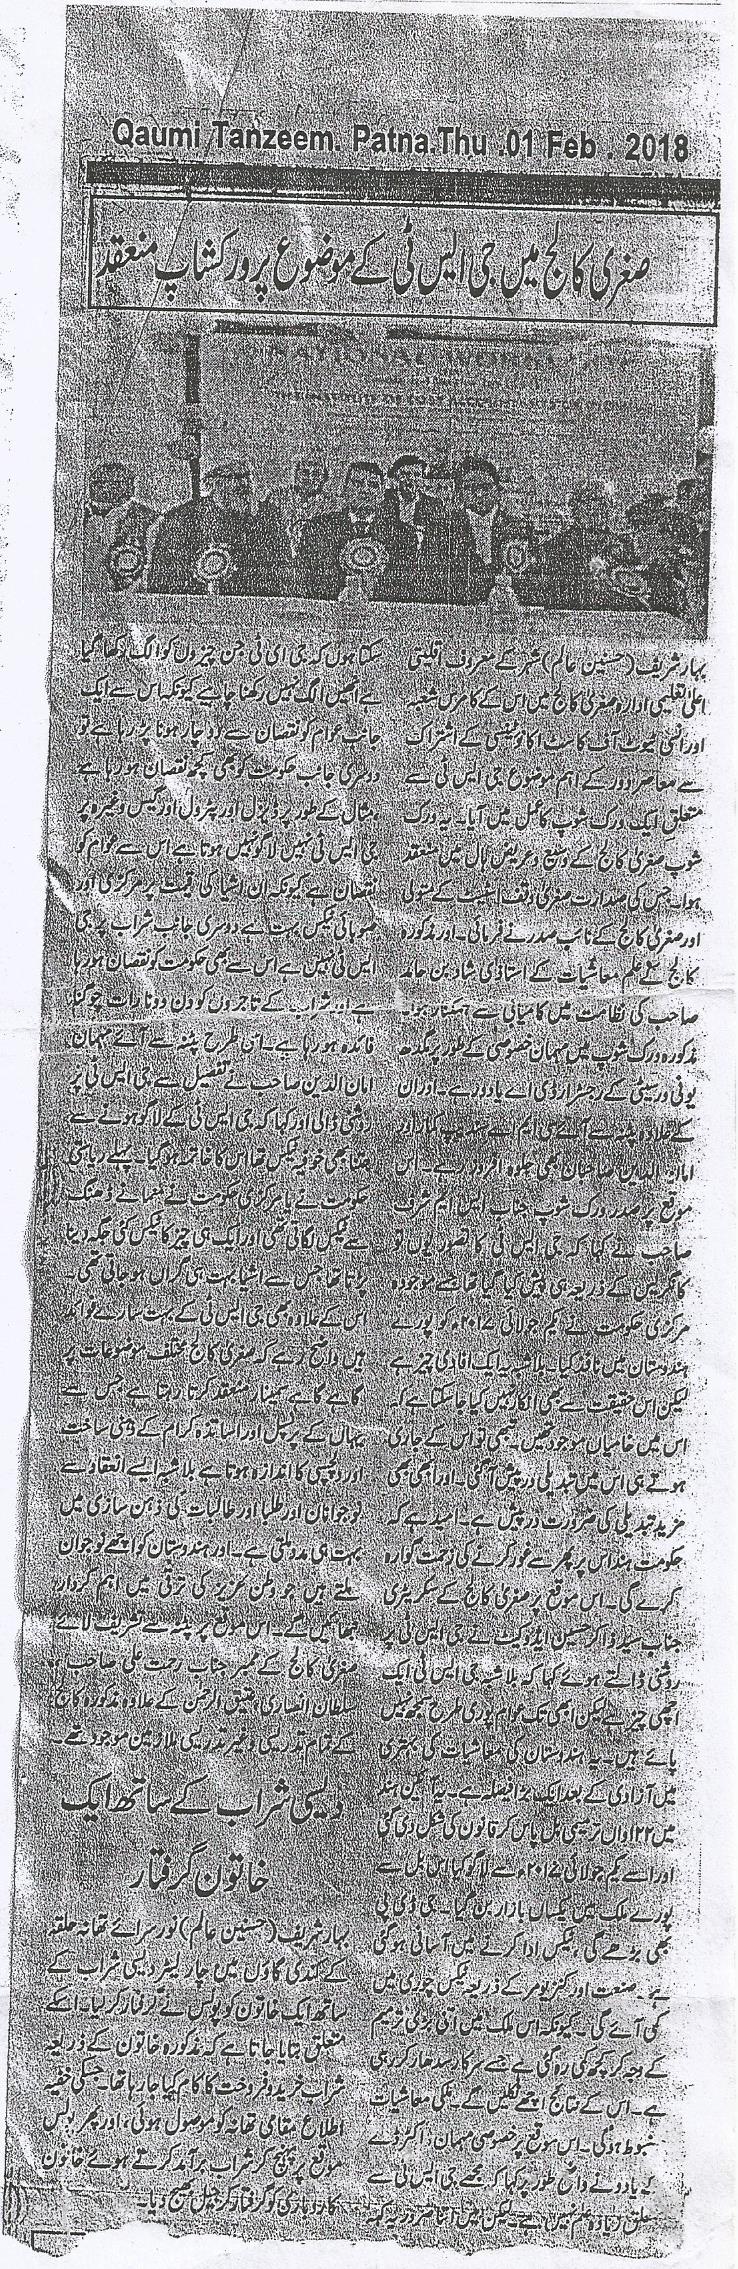 Qaumi Tanzeem. Patna.Thu .01 Feb . 2018
صغریٰ کالج میں جی ایس ٹی کے موضوع پر ورکشاپ منعقد
NATIONAL
بہار شریف (حسنین عالم) شہر کے معروف اقلیتی
اعلیٰ تعلیمی ادارہ صغریٰ کالج میں اس کے کامرس شعبہ
اور انسی ٹیوٹ آف کاسٹ اکاؤنٹینسی کے اشتراک
سے معاصر دور کے اہم موضوع جی ایس ٹی سے
متعلق ایک ورک شوپ کا عمل میں آیا۔ یہ ورک
شوپ صغریٰ کالج کے وسیع و عریض ہال میں منعقد
ہوا۔ جس کی صدارت صغریٰ وقف اسٹیٹ کے متولی
اور صغریٰ کالج کے نائب صدر نے فرمائی۔ اور مذکورہ
کالج کے علم معاشیات کے استاذ ذی شاد بن حامد
صاحب کی نظامت میں کامیابی سے ہمکنار ہوا
مذکورہ ورک شوپ میں مہمان خصوصی کے طور پر مگدھ
یونی ورسیٹی کے رجسٹرار ڈی اے یادو رہے۔ اور ان
کے علاوہ پٹنہ سے آئے سی ایم اے کمار اور
امان الدین صاحبان بھی جلوہ افروز رہے۔ اس
موقع پر صدر ورک شوپ جناب ایس ایم شرف
صاحب نے کہا کہ جی ایس ٹی کا تصور یوں تو
کانگریس کے ذریعہ ہی پیش کیا گیا تھا جسے موجودہ
مرکزی حکومت نے یکم جولائی ۲۰۱۷ء کو پورے
ہندوستان میں نافذ کیا۔ بلا شبہ یہ ایک افادی چیز ہے
لیکن اس حقیقت سے بھی انکار نہیں کیا جا سکتا ہے کہ
اس میں خامیاں موجود تھیں۔ تبھی تو اس کے جاری
ہوتے ہی اس میں تبدیلی در پیش آ گئی۔ اور ابھی بھی
مزید تبدیلی کی ضرورت در پیش ہے۔ امید ہے کہ
حکومت ہند اس پر پھر سے غور کرنے کی زحمت گوارہ
کرے گی۔ اس موقع پر صغریٰ کالج کے سکریٹری
جناب سید ذاکر حسین ایڈوکیٹ نے جی ایس ٹی پر
روشنی ڈالتے ہوئے کہا کہ بلا شبہ جی ایس ٹی ایک
اچھی چیز ہے لیکن ابھی تک عوام پوری طرح سمجھ نہیں
پائے ہیں۔ یہ ہندوستان کی معاشیات کی بہتری
میں آزادی کے بعد ایک بڑا فیصلہ ہے۔ یہ آئین ہند
میں ۱۲۲ واں ترمیمی بل پاس کر قانون کی شکل دی گئی
اور اسے یکم جولائی ۲۰۱۷ء سے لاگو کیا اس بل سے
پورے ملک میں یکساں بازار بن گیا۔ جی ڈی پی
بھی بڑھے گی ٹیکس ادا کرنے میں آسانی ہو گئی
ہے۔ صنعت اور کنزیومر کے ذریعہ ٹیکس چوری میں
کمی آئے گی۔ کیونکہ اس ملک میں اتنی بڑی ترمیم
کے وجہ کر کچھ کمی رہ گئی ہے جسے سرکار سدھار کر رہی
ہے۔ اس کے نتائج اچھے نکلیں گے۔ ملکی معاشیات
مضبوط ہوگی۔ اس موقع پر خصوصی مہمان ڈاکٹر ڈے
کے یادو نے واضح طور پر کہا کہ مجھے جی ایس ٹی سے
متعلق زیادہ علم نہیں ہے۔ لیکن میں اتنا ضرور یہ کہہ
سکتا ہوں کہ جی ای ٹی جن چیزوں کو الگ رکھا گیا
ہے انھیں الگ نہیں رکھنا چاہیے کیونکہ اس سے ایک
جانب عوام کو نقصان سے دو چار ہونا پڑ رہا ہے تو
دوسری جانب حکومت کو بھی کچھ نقصان ہو رہا ہے
مثال کے طور پر ڈیزل اور پٹرول اور گیس وغیرہ پر
جی ایس ٹی نہیں لاگو نہیں ہوتا ہے اس سے عوام کو
نقصان ہے کیونکہ ان اشیا کی قیمت پر مرکزی اور
صوبائی ٹیکس بہت ہے دوسری جانب شراب پر جی
ایس ٹی نہیں ہے اس سے بھی حکومت کو نقصان ہو رہا
ہے اور شراب کے تاجروں کو دن دونا رات چوگنا
فائدہ ہو رہا ہے۔ اسی طرح پٹنہ سے آئے مہمان
امان الدین صاحب نے تفصیل سے جی ایس ٹی پر
روشنی ڈالی اور کہا کہ جی ایس ٹی کے لاگو ہونے سے
جتنا بھی خوفیہ ٹیکس تھا اس کا خاتمہ ہو گیا۔ پہلے ریاستی
حکومت نے یا مرکزی حکومت نے ڈھنگ
سے ٹیکس لگاتی تھی اور ایک ہی چیز کا ٹیکس کئی جگہ دینا
پڑتا تھا جس سے اشیا بہت ہی گراں ہو جاتی تھی۔
اس کے علاوہ بھی جی ایس ٹی کے بہت سارے فوائد
ہیں واضح رہے کہ صغریٰ کالج مختلف موضوعات پر
گاہے گاہے سمینار منعقد کرتا رہتا ہے جس سے
یہاں کے پرنسپل اور اساتذہ کرام کے ذہنی ساخت
اور دلچسپی کا اندازہ ہوتا ہے بلا شبہ ایسے انعقاد سے
نوجوانان اور طلبا اور طالبات کی ذہن سازی میں
بہت ہی مدد ملتی ہے۔ اور ہندوستان کو اچھے نوجوان
ملتے ہیں جو وطن عزیز کی ترقی میں اہم کردار
نبھائیں گے۔ اس موقع پر پٹنہ سے تشریف لائے
صغریٰ کالج کے ممبر جناب رحمت علی صاحب،
سلطان انصاری، عتیق الرحمن کے علاوہ مذکورہ کالج
کے تمام تدریسی و غیر تدریسی ملازمین موجود تھے۔
دیسی شراب کے ساتھ ایک
خاتون گرفتار
بہار شریف (حسنین عالم) نور سرائے تھانہ حلقہ
کے کندی گاؤں میں چار لیٹر دیسی شراب کے
ساتھ ایک خاتون کو پولس نے گرفتار کر لیا۔ اسکے
متعلق بتایا جاتا ہے کہ مذکورہ خاتون کے ذریعہ
شراب خرید و فروخت کا کام کیا جا رہا تھا۔ جسکی خفیہ
اطلاع مقامی تھانہ کو موصول ہوئی، اور پھر پولس
موقع پر پہنچ کر شراب برآمد کرتے ہوئے خاتون
کاروباری کو گرفتار کر جیل بھیج دیا۔